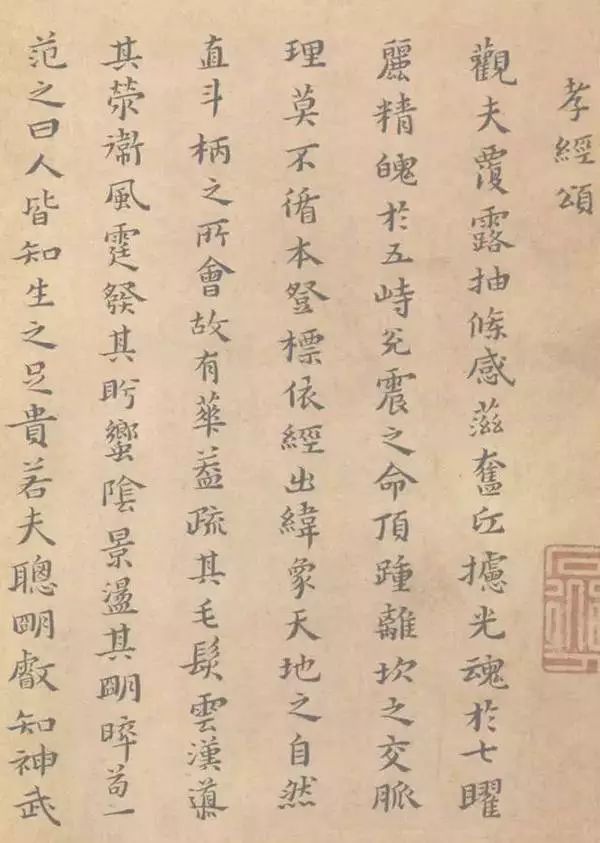 孝經頌
觀夫覆露抽條感滋奮丘攄光魂於七曜
麗精魄於五峙兌震之命頂踵離坎之交脈
理莫不循本登標依經出緯象天地之自然
直斗柄之所會故有華蓋疏其毛髮雲漢導
其滎衞風霆發其盻蠁陰景盪其朙晬苟一
范之曰人皆知生之足貴若夫聰朙叡知神武